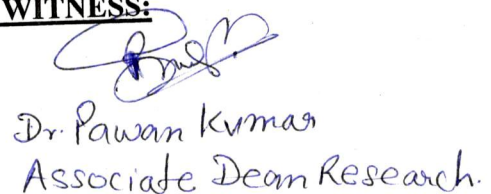 WITNESS:
Dr. Pawan Kumar
Associate Dean Research.